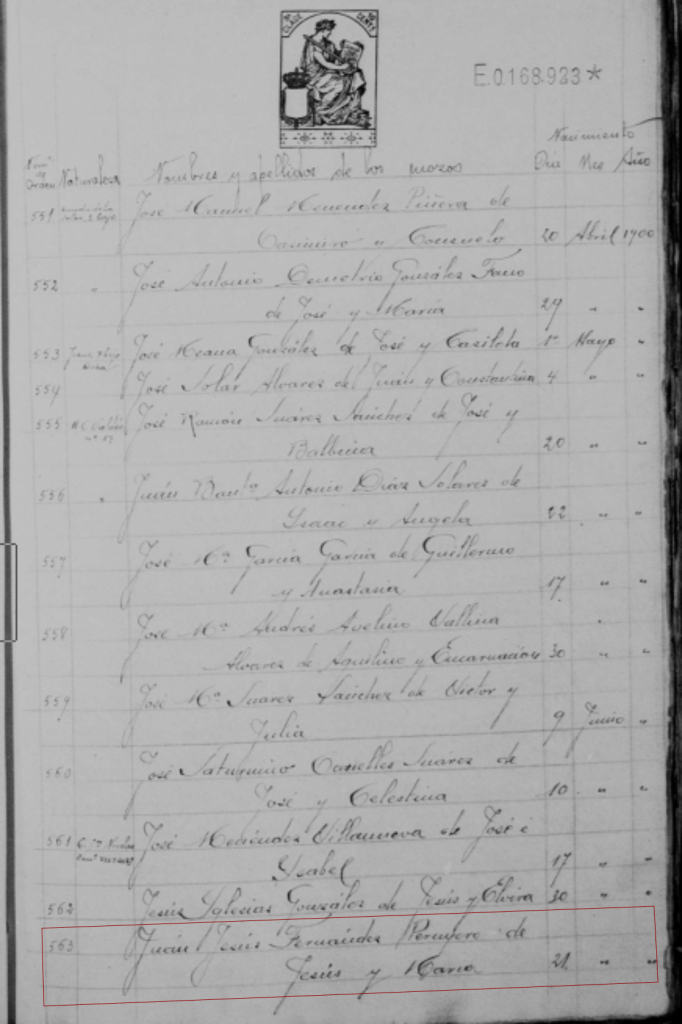 CLASE
E.0.168.923*
Nacimiento
Naturaleza Nombres y apellidos de los mozos Dia Mes Año
551 José Manuel Menendez Piñera de
Casimiro y Consuelo 20 Abril 1900
552 " José Antonio Demetrio González Fano
de José y María 29 " "
553 José Meana González de José y Casilda 1º Mayo "
554 José Solar Alvarez de Juan y Constantina 4 " "
555 José Ramón Suárez Sánchez de José y
Balbina 20 " "
556 " Juan Bautª Antonio Diaz Solares de
Isaac y Angela 22 " "
557 José Mª García García de Guillermo
y Anastasia 17 " "
558 José Mª Andrés Avelino Vallina
Alvarez de Aquilino y Encarnación 30 " "
559 José Mª Suarez Sánchez de Victor y
Julia 9 Junio "
560 José Saturnino Canelles Suárez de
José y Celestina 10 " "
561 José Menéndez Villanueva de José é
Ysabel 17 " "
562 Jesús Yglesias González de Jesús y Elvira 30 " "
563 Juan Jesús Fernández Peruyero de
Jesús y María 21 " "